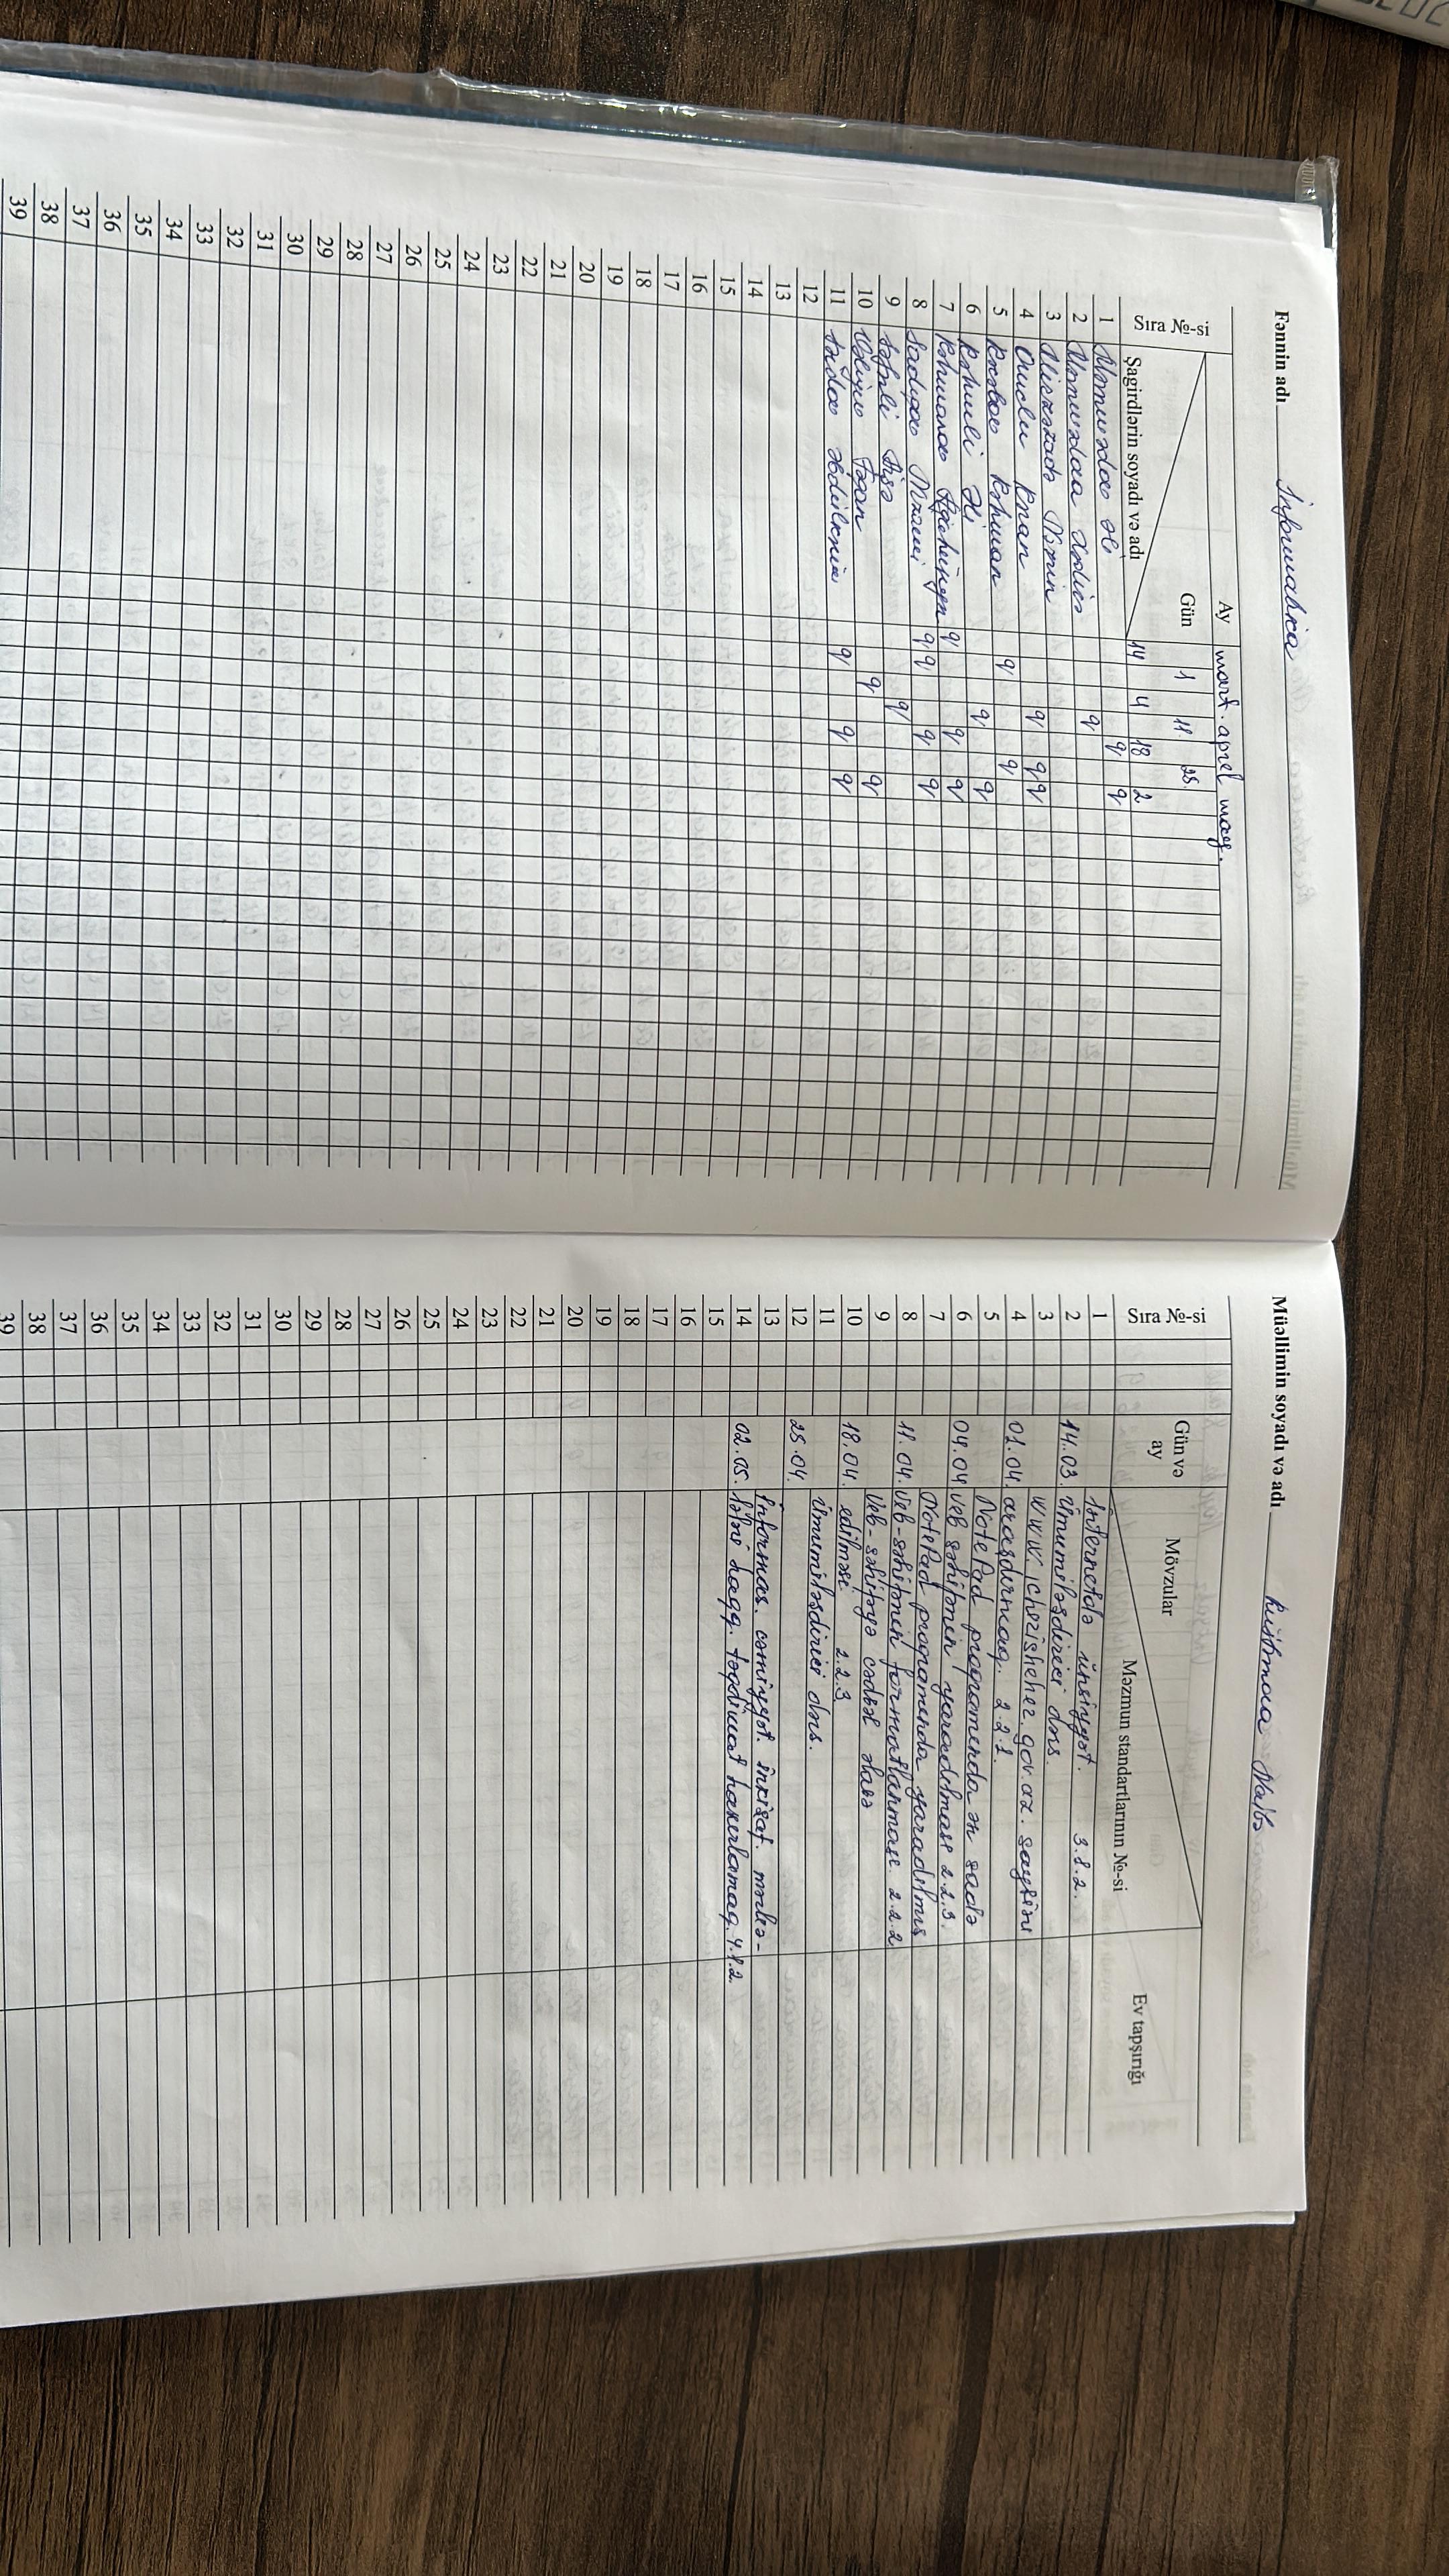 Fənnin adı İnformatika
Ay mart. aprel may.
Gün 1 11. 25.
Sıra №-si
Şagirdlərin soyadı və adı 14 4 18 2
1 Məmmədov Əli q q
2 Məmmədova Xədicə q
3 Mirzəzadə Nərmin
4 Kənan q q q
5 Rəcəbov Rəhman q q
6 Rəhmli Əli q q
7 Rəhmanov Ağahüseyn q q q
8 Sadıqov Nizami q q q q
9 q
10 q q
11 q q q
12
13
14
15
16
17
18
19
20
21
22
23
24
25
26
27
28
29
30
31
32
33
34
35
36
37
38
39
Müəllimin soyadı və adı Rüstəmova Naibə
Sıra №-si
Gün və ay
Mövzular
Məzmun standartlarının №-si
Ev tapşırığı
1 İnternetdə ünsiyyət. 3.3.2.
2 14.03. Ümumiləşdirici dərs.
3 www.icherisheher.gov.az. saytını
4 01.04. araşdırmaq. 2.2.1.
5 NotePad proqramında ən sadə
6 04.04. veb səhifənin yaradılması 2.2.3.
7 NotePad proqramında yaradılmış
8 11.04. Veb-səhifənin formatlanması. 2.2.2
9 Veb-səhifəyə cədvəl əlavə
10 18.04. edilməsi 2.2.3.
11 Ümumiləşdirici dərs.
12 25.04.
13 İnformas. cəmiyyət. inkişaf. mərhə-
14 02.05. lələri haqq. təqdimat hazırlamaq. 4.1.2.
15
16
17
18
19
20
21
22
23
24
25
26
27
28
29
30
31
32
33
34
35
36
37
38
39